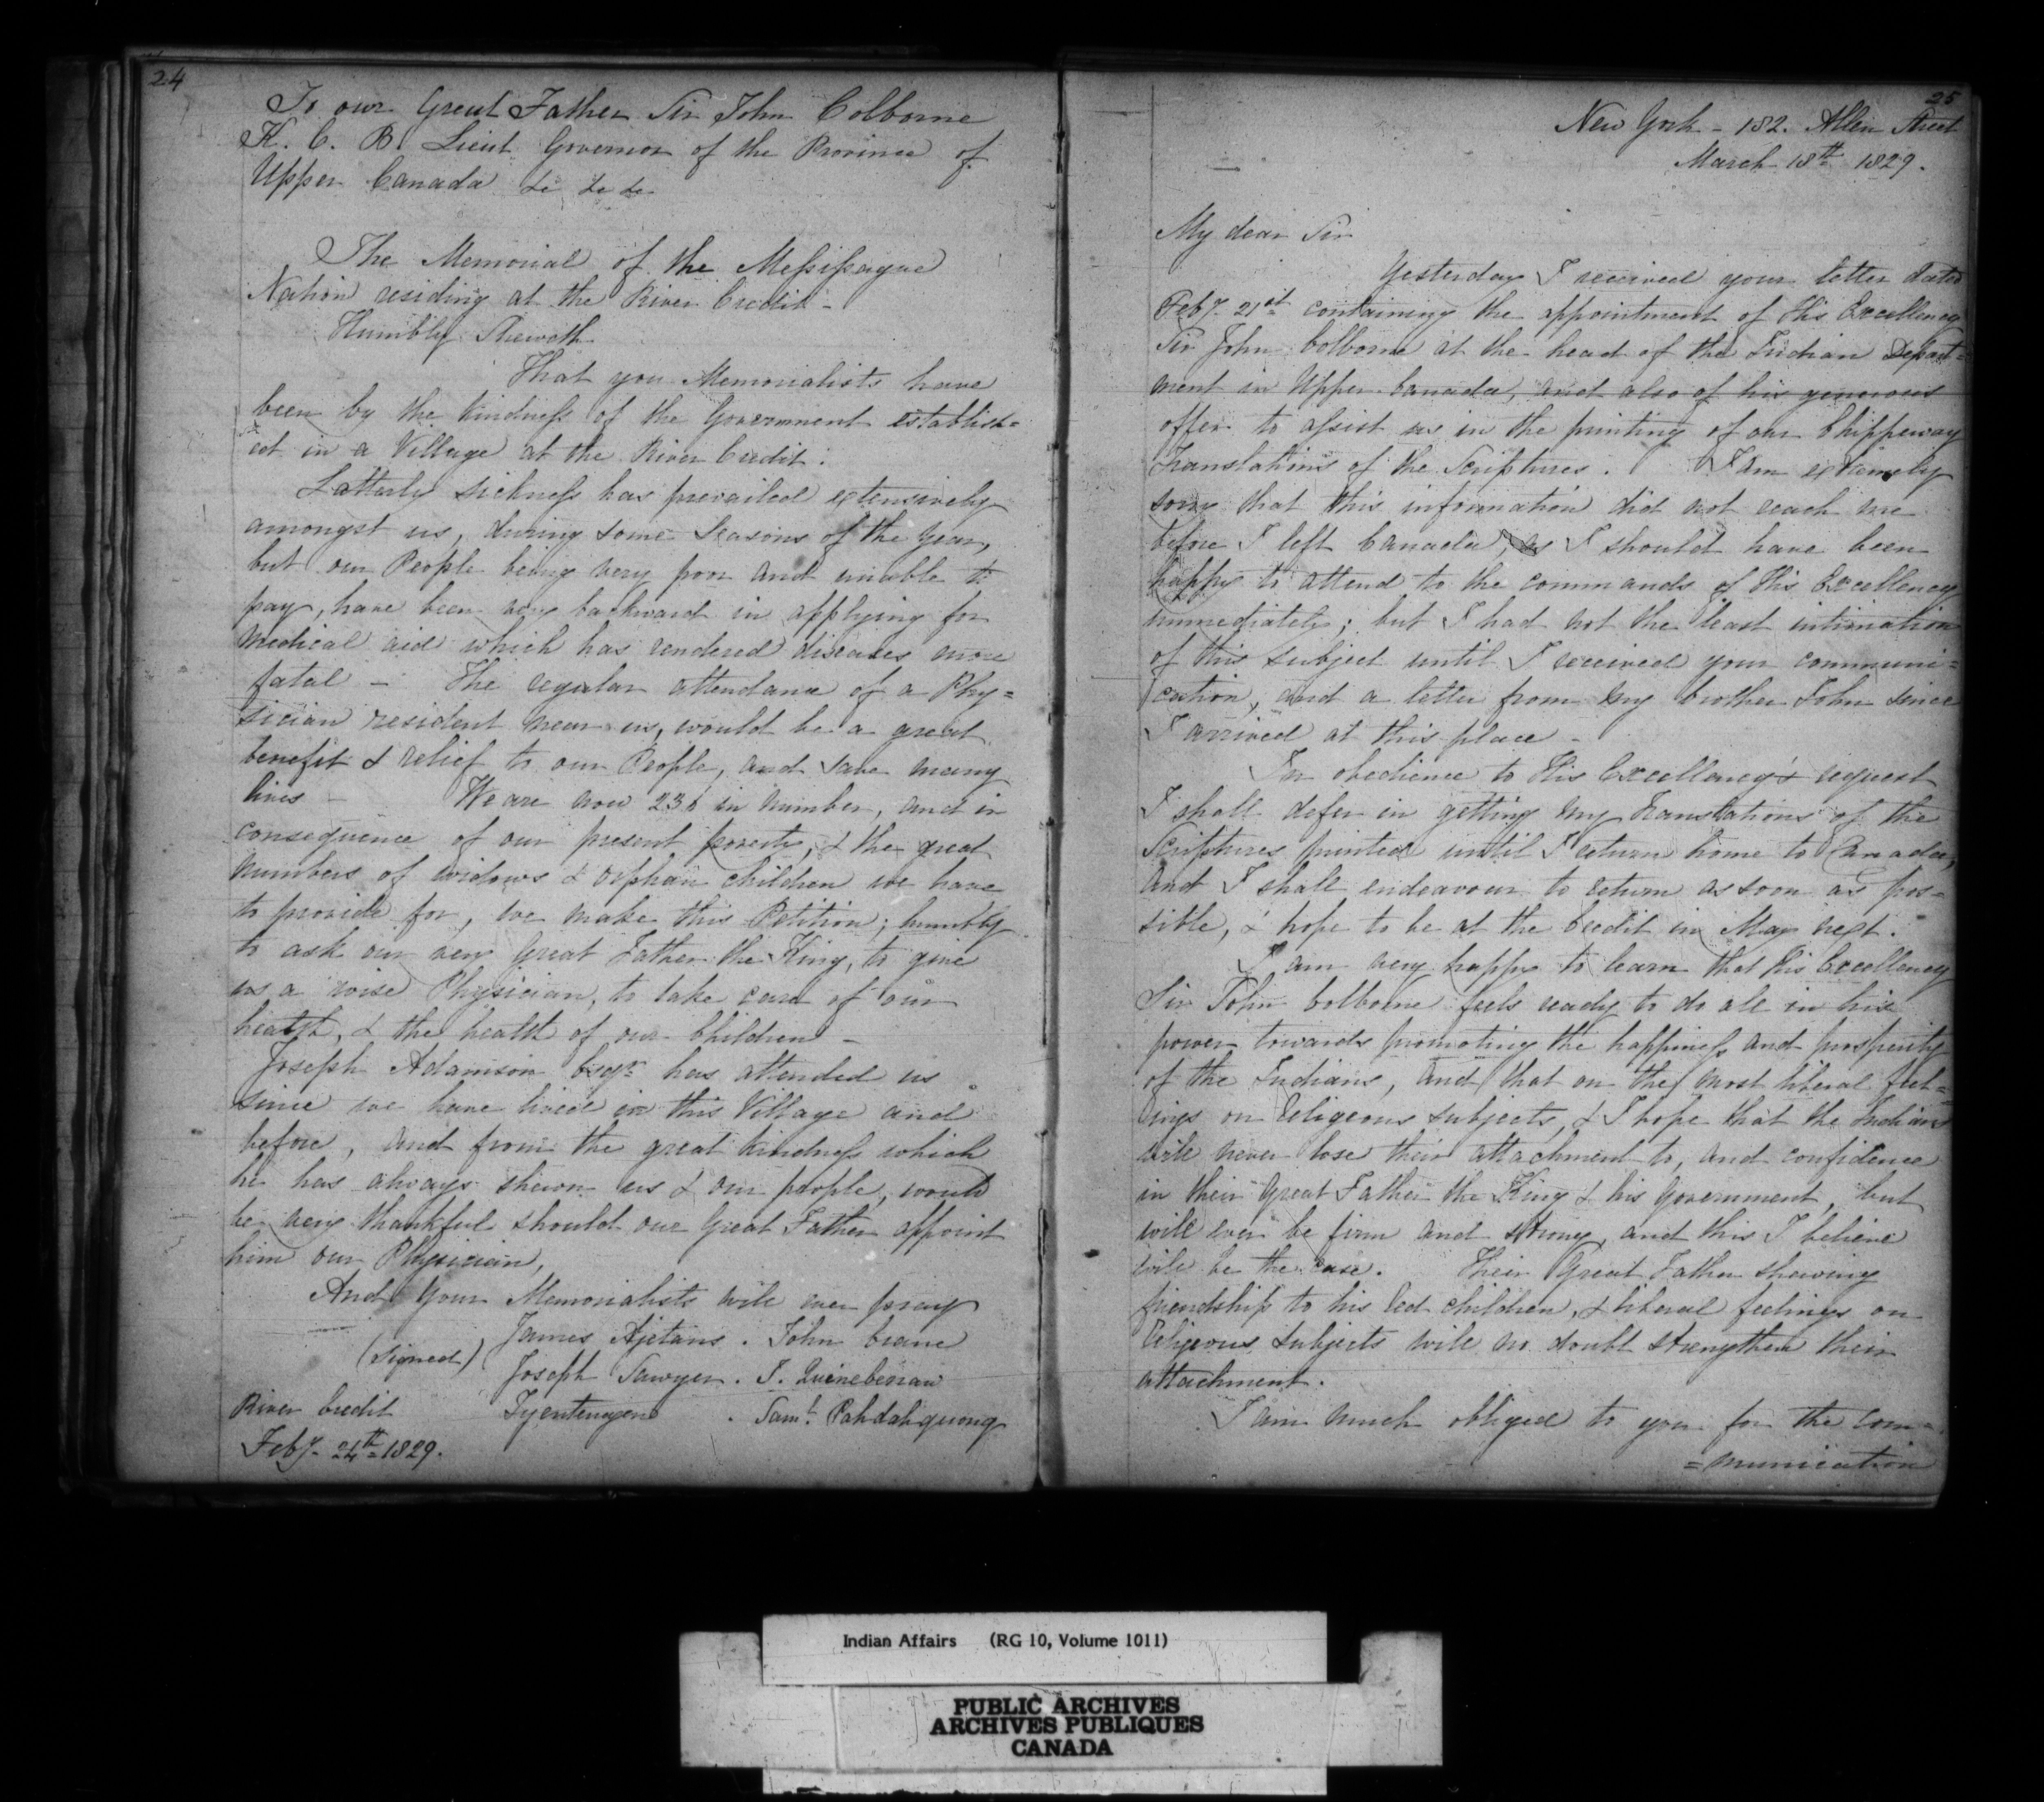 24
To our Great Father Sir John Colborne
K. C. B. Lieut Governor of the Province of
Upper Canada &c &c &c
The Memorial of the Messissague
Nation residing at the River Credit -
Humbly Sheweth
That you Memorialists have
been by the kindness of the Government establish=
ed in a Village at the River Credit.
Latterly sickness has prevailed extensively
amongst us, during some Seasons of the Year,
but our People being very poor and unable to
pay, have been very backward in applying for
Medical aid which has rendered diseases more
fatal - The regular attendance of a Phy=
sician resident near us, would be a great
benefit & relief to our People, and save many
lives - We are now 236 in number, and in
consequence of our present poverty, & the great
numbers of widows & orphan children we have
to provide for, we make this Petition; humbly
to ask our very Great Father the King, to give
us a wise Physician, to take care of our
health, & the health of our Children -
Joseph Adamson Esqr. has attended us
since we have lived in this Village and
before, and from the great kindness which
he has always shewn us & our people, would
be very thankful should our Great Father appoint
him our Physician,
And Your Memorialists will ever pray
James Ajetans . John Crane
(signed) Joseph Sawyer .
River Credit . Saml. Pahdahquong
Feby. 24th 1829.
25
New York - 182. Allen Street
March 18th 1829.
My dear Sir
Yesterday I received your letter dated
Feby. 21st containing the appointment of His Excellency
Sir John Colborne at the head of the Indian Depart=
ment in Upper Canada, and also of his generous
offer to assist us in the printing of our Chippeway
Translations of the Scriptures. I am extremely
sorry that this information did not reach me
before I left Canada, as I should have been
happy to attend to the commands of His Excellency
immediately; but I had not the least intimation
of this subject until I received your communi=
cation, and a letter from my brother John since
I arrived at this place -
In obedience to His Excellency's request
I shall defer in getting my Translations of the
Scriptures printed until I return home to Canada,
and I shall endeavour to return as soon as pos=
sible, & hope to be at the Credit in May next.
I am very happy to learn that His Excellency
Sir John Colborne feels ready to do all in his
power towards promoting the happiness and prosperity
of the Indians, and that on the most liberal feel=
ings on Religeous subjects, & I hope that the Indians
will never lose their attachment to, and confidence
in their Great Father the King & his Government, but
will ever be firm and strong, and this I believe
will be the case. Their Great Father shewing
friendship to his Red children, & liberal feelings on
Religeous subjects will no doubt strengthen their
attachment.
I am much obliged to you for the com=
=munication
Indian Affairs (RG 10, Volume 1011)
PUBLIC ARCHIVES
ARCHIVES PUBLIQUES
CANADA